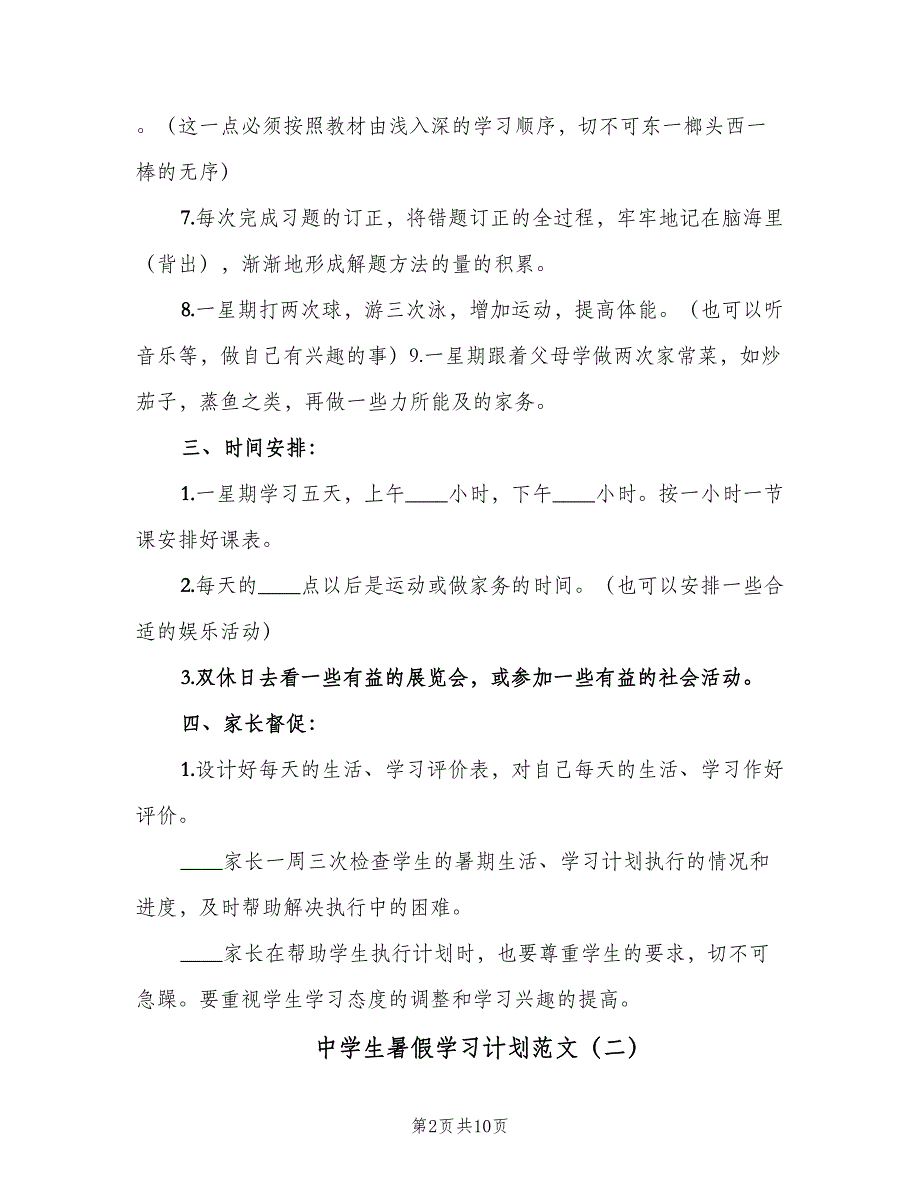 。（这一点必须按照教材由浅入深的学习顺序，切不可东一榔头西一
棒的无序）
7.每次完成习题的订正，将错题订正的全过程，牢牢地记在脑海里
（背出），渐渐地形成解题方法的量的积累。
8.一星期打两次球，游三次泳，增加运动，提高体能。（也可以听
音乐等，做自己有兴趣的事）9.一星期跟着父母学做两次家常菜，如炒
茄子，蒸鱼之类，再做一些力所能及的家务。
三、时间安排：
1.一星期学习五天，上午____小时，下午____小时。按一小时一节
课安排好课表。
2.每天的____点以后是运动或做家务的时间。（也可以安排一些合
适的娱乐活动）
3.双休日去看一些有益的展览会，或参加一些有益的社会活动。
四、家长督促：
1.设计好每天的生活、学习评价表，对自己每天的生活、学习作好
评价。
____家长一周三次检查学生的暑期生活、学习计划执行的情况和
进度，及时帮助解决执行中的困难。
____家长在帮助学生执行计划时，也要尊重学生的要求，切不可
急躁。要重视学生学习态度的调整和学习兴趣的提高。
中学生暑假学习计划范文（二）
第2页共10页